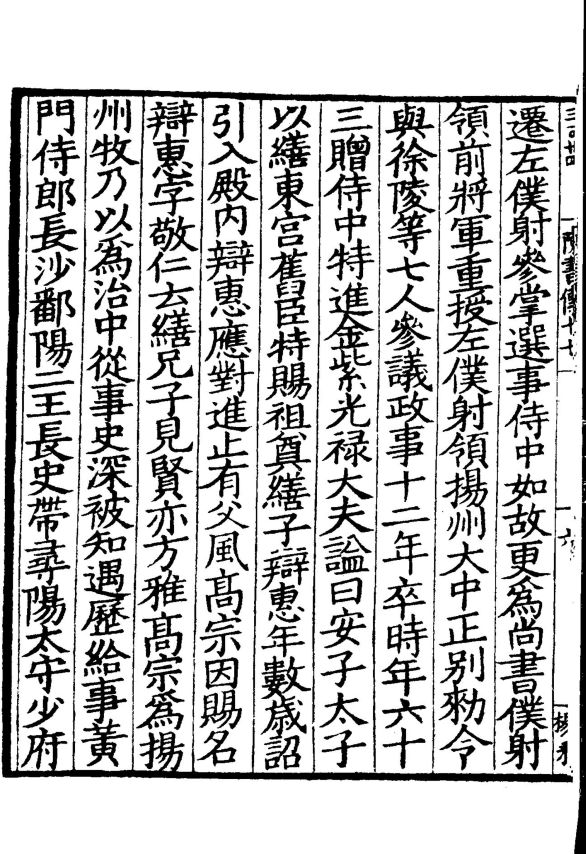 遷左僕射參掌選事侍中如故更爲尚書僕射
領前將軍重授左僕射領揚州大中正別勑令
與徐陵等七人參議政事十二年卒時年六十
三贈侍中特進金紫光祿大夫謚曰安子太子
以繕東宮舊臣特賜祖奠繕子辯惠年數歲詔
引入殿內辯惠應對進止有父風髙宗因賜名
辯惠字敬仁云繕兄子見賢亦方雅髙宗爲揚
州牧乃以爲治中從事史深被知遇歷給事黃
門侍郎長沙鄱陽二王長史帶尋陽太守少府